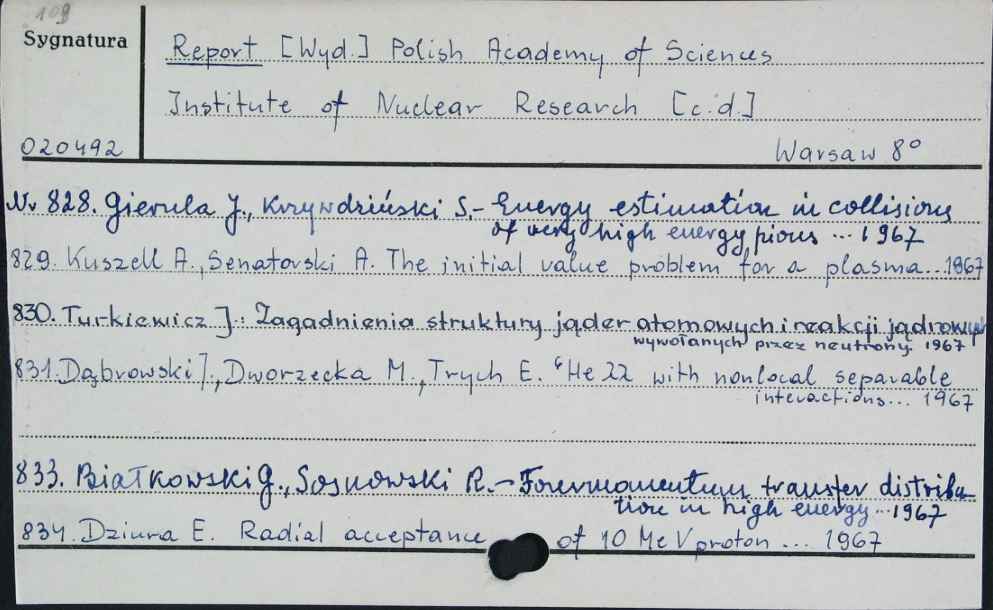 109
Sygnatura
Report [Wyd.] Polish Academy of Sciences
Institute of Nuclear Research [c.d.]
020492
Warsaw 8°
Nr 828. Gierula J., Krzywdziński S.- Energy estimation in collisions
of very high energy pions ... 1967
829. Kuszell A., Senatorski A. The initial value problem for a plasma...1967
830. Turkiewicz J.: Zagadnienia struktury jąder atomowych i reakcji jądrowych
wywołanych przez neutrony. 1967
831. Dąbrowski J., Dworzecka M., Trych E. 6He ΛΛ with nonlocal separable
interactions... 1967
833. Białkowski G., Sosnowski R.- Fourmomentum transfer distribu
tion in high energy...1967
834. Dziura E. Radial acceptance of 10 MeV proton ... 1967